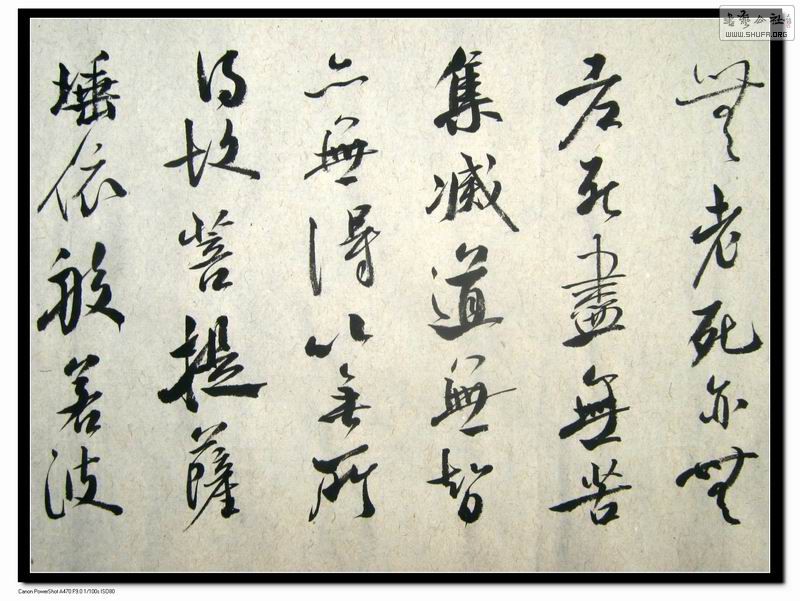 書藝公社
WWW.SHUFA.ORG
無老死亦無
老死盡無苦
集滅道無智
亦無得以無所
得故菩提薩
埵依般若波
Canon PowerShot A470 F9.0 1/100s ISO80